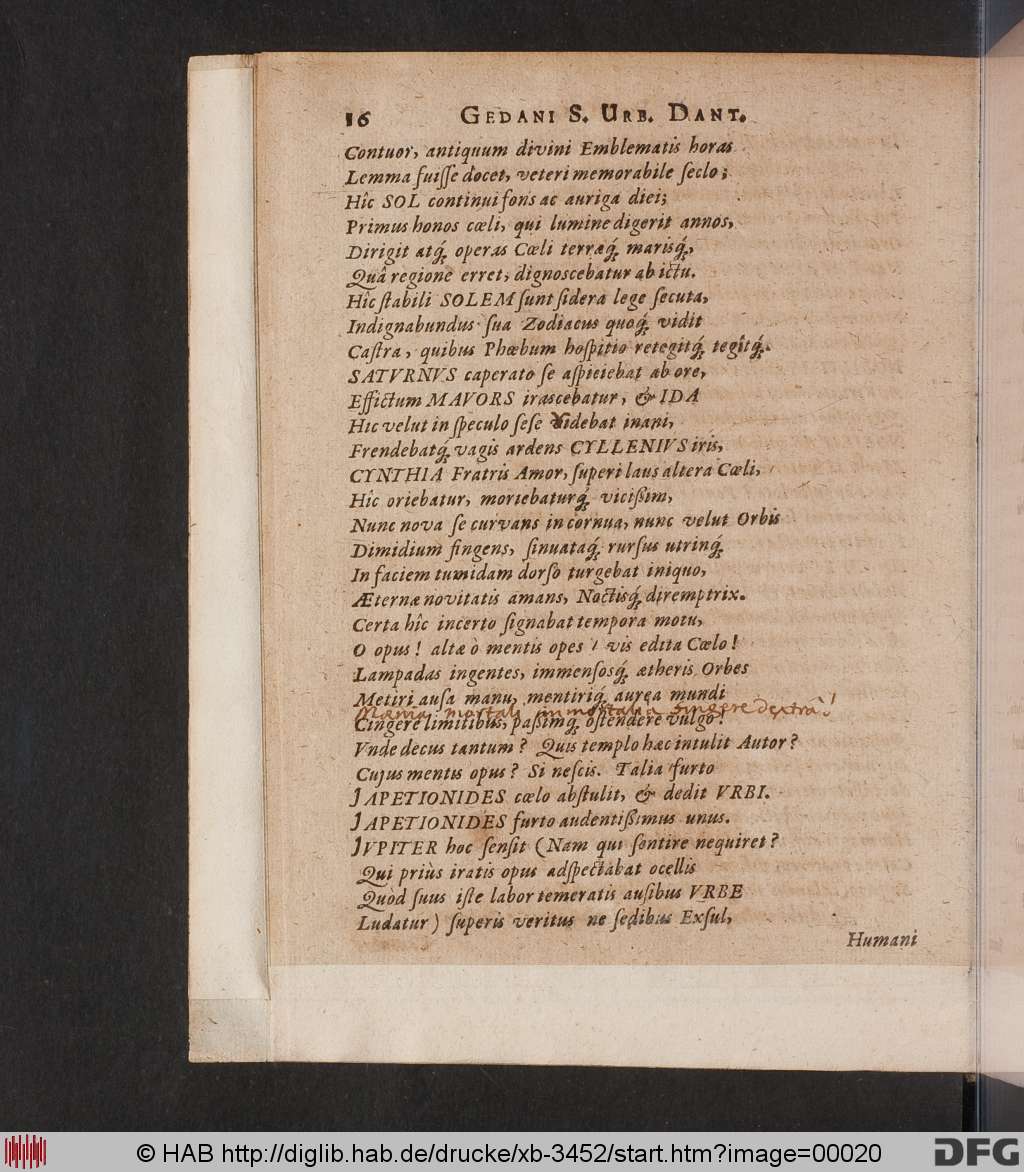 16 GEDANI S. URB. DANT.
Contuor, antiquum divini Emblematis horas
Lemma fuiſſe docet, veteri memorabile ſeclo;
Hîc SOL continui fons ac auriga diei;
Primus honos cœli, qui lumine digerit annos,
Dirigit atq́; operas Cœli terræq́; marisq́;,
Quâ regione erret, dignoscebatur ab ictu.
Hîc ſtabili SOLEM ſunt ſidera lege ſecuta,
Indignabundus ſua Zodiacus quoq́; vidit
Caſtra, quibus Phœbum hoſpitio retegitq́; tegitq́;.
SATVRNVS caperato ſe aſpiciebat ab ore,
Effictum MAVORS irascebatur, & IDA
Hic velut in ſpeculo ſeſe videbat inani,
Frendebatq́; vagis ardens CYLLENIVS iris,
CYNTHIA Fratris Amor, ſuperi laus altera Cœli,
Hîc oriebatur, moriebaturq́; vicißim,
Nunc nova ſe curvans in cornua, nunc velut Orbis
Dimidium fingens, ſinuataq́; rurſus utrinq́;
In faciem tumidam dorſo turgebat iniquo,
Æternæ novitatis amans, Noctisq́; diremptrix.
Certa hîc incerto ſignabat tempora motu,
O opus! altæ ò mentis opes! vis edita Cœlo!
Lampadas ingentes, immenſosq́; ætheris Orbes
Metiri auſa manu, mentiriq́; aurea mundi
Mœnia: mortali immortalia fingere dextrâ!
Cingere limitibus, paßimq́; oſtendere vulgo!
Vnde decus tantum? Quis templo hæc intulit Autor?
Cujus mentis opus? Si neſcis. Talia furto
JAPETIONIDES cœlo abſtulit, & dedit VRBI.
JAPETIONIDES furto audentißimus unus.
JVPITER hoc ſenſit (Nam qui ſentire nequiret?
Qui priùs iratis opus adſpectabat ocellis
Quòd ſuus iſte labor temeratis auſibus VRBE
Ludatur) ſuperis veritus ne ſedibus Exſul,
Humani
© HAB http://diglib.hab.de/drucke/xb-3452/start.htm?image=00020
DFG